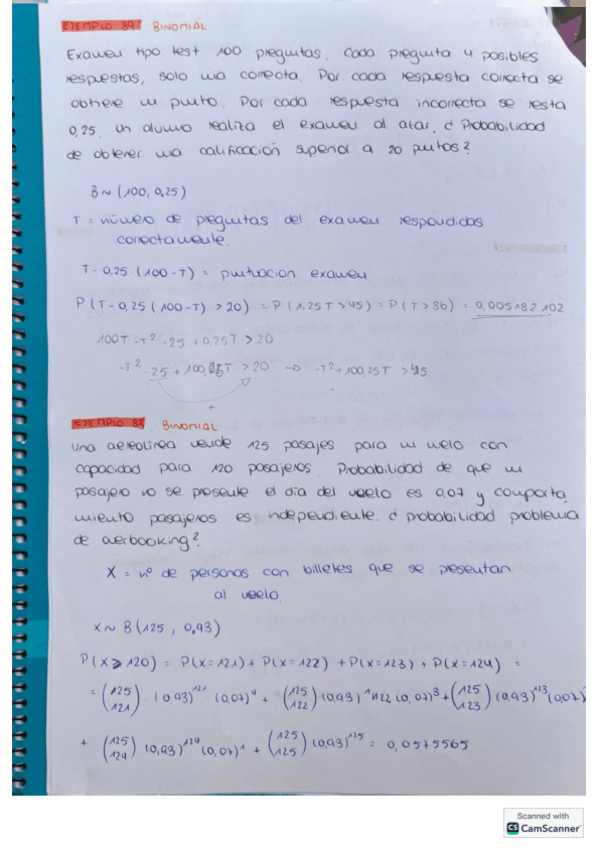 EJEMPLO 89 BINOMIAL
Examen tipo test 100 preguntas. Cada pregunta 4 posibles
respuestas, solo una correcta. Por cada respuesta correcta se
obtiene un punto. Por cada respuesta incorrecta se resta
0,25. Un alumno realiza el examen al azar. ¿Probabilidad
de obtener una calificación superior a 20 puntos?
B ~ (100, 0,25)
T = número de preguntas del examen respondidas
correctamente.
T - 0,25 · (100-T) = puntuación examen
P(T - 0,25 (100-T) > 20) = P(1,25T > 45) = P(T > 36) = 0,005182102
100T - T² - 25 + 0,25T > 20
-T² - 25 + 100,25T > 20 → -T² + 100,25T > 45
+
EJEMPLO 88 BINOMIAL
Una aereolínea vende 125 pasajes para un vuelo con
capacidad para 120 pasajeros. Probabilidad de que un
pasajero no se presente el día del vuelo es 0,07 y comporta
miento pasajeros es independiente. ¿probabilidad problema
de overbooking?
X = nº de personas con billetes que se presentan
al vuelo.
X ~ B(125, 0,93)
P(X ≥ 120) = P(X=121) + P(X=122) + P(X=123) + P(X=124) =
= (125 121) · (0,93)¹²¹ · (0,07)⁴ + (125 122) (0,93)¹²² (0,07)³ + (125 123) (0,93)¹²³ (0,07)
+ (125 124) (0,93)¹²⁴ (0,07)¹ + (125 125) (0,93)¹²⁵ = 0,0575565
Scanned with
CS CamScanner